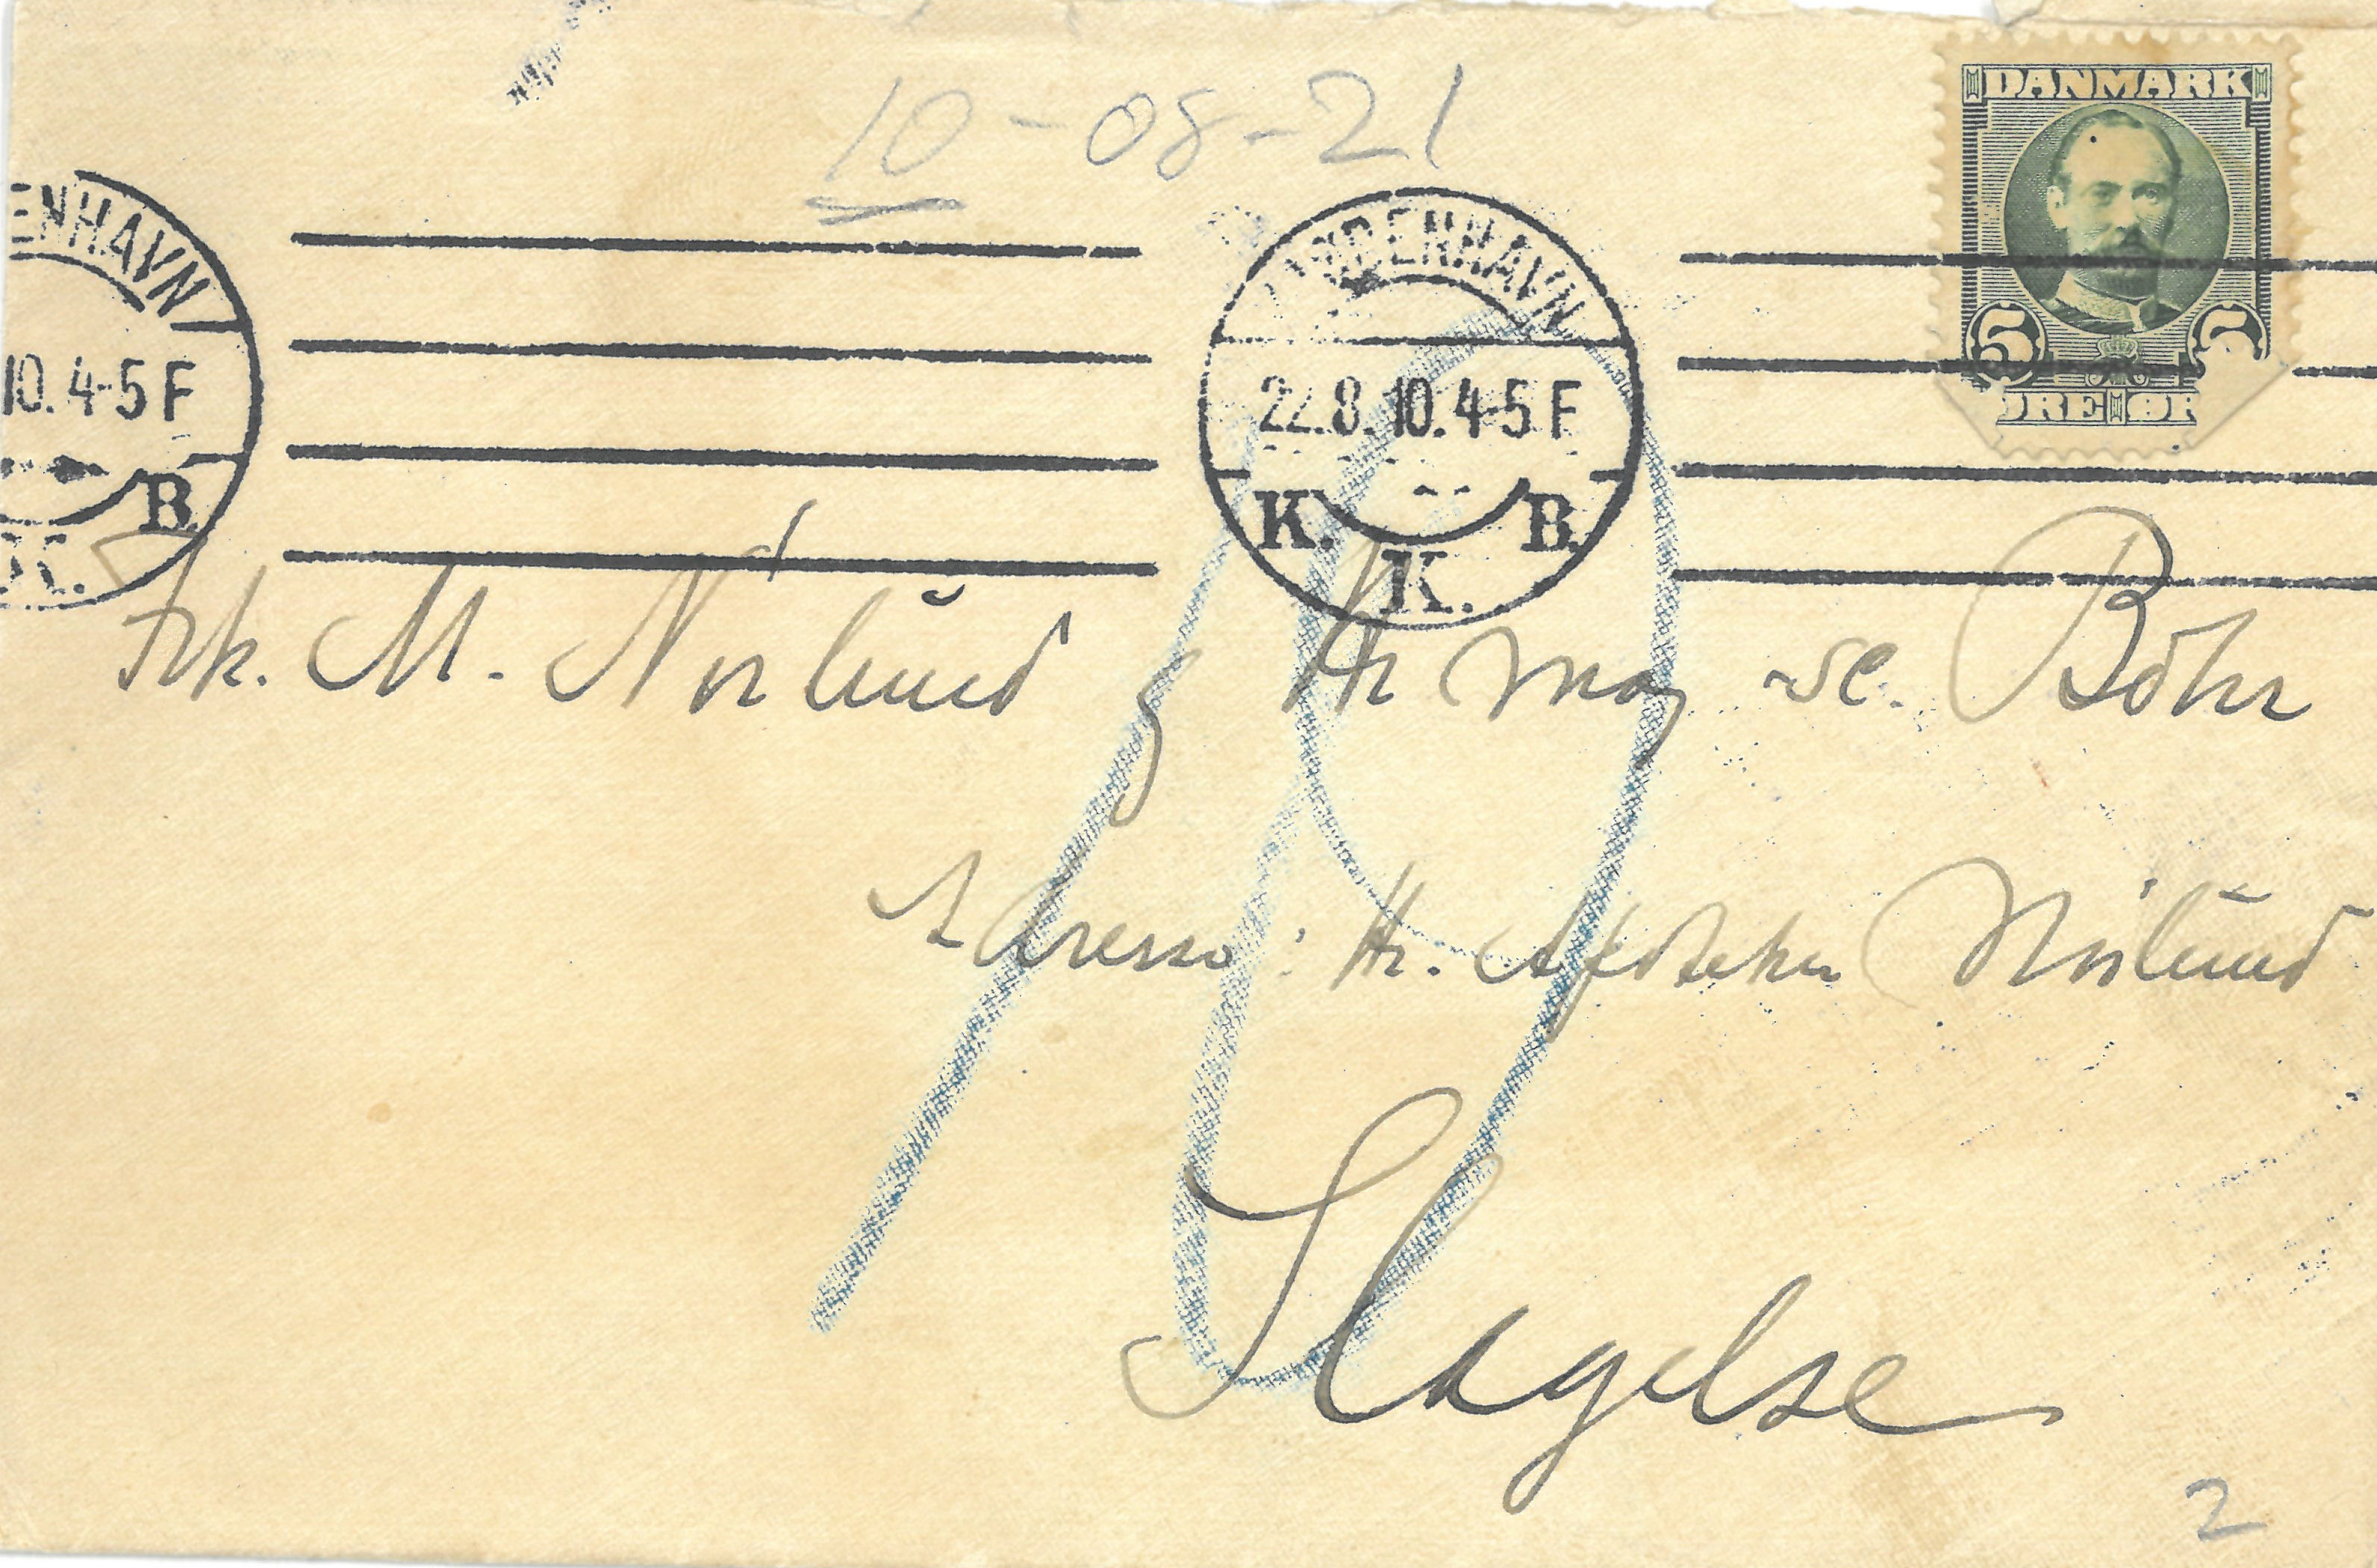 10-08-21
DANMARK
5 5
ØRE ØR
ENHAVN
10. 4-5 F
B.
K.
KJØBENHAVN
22.8.10. 4-5 F
K. B.
K.
10
Frk. M. Nørlund og Hr Mag. sc. Bohr
Adresse: Hr. Apoteker Nørlund
Slagelse
2